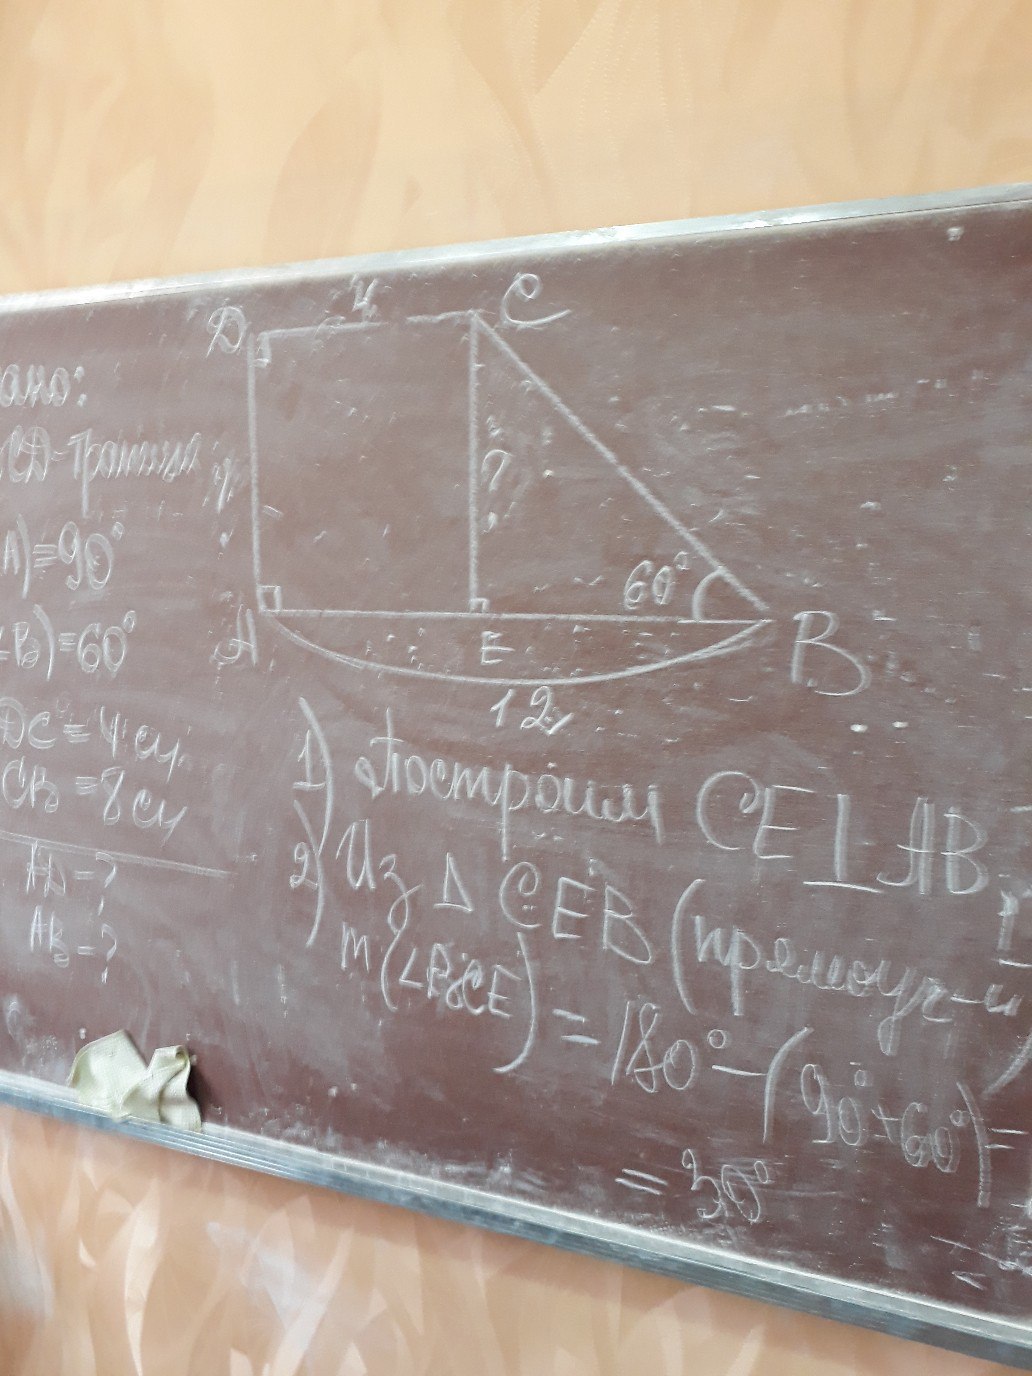 D 4 C
ано:
CD-трапеция
A)=90°
∠B)=60°
DC=4см
CB=8см
AD-?
AB-?
60°
A E B
12
1) Построим CE⊥AB
2) Из Δ CEB (прямоуг-й
m(∠BCE)=180°-(90°+60°)=
=30°